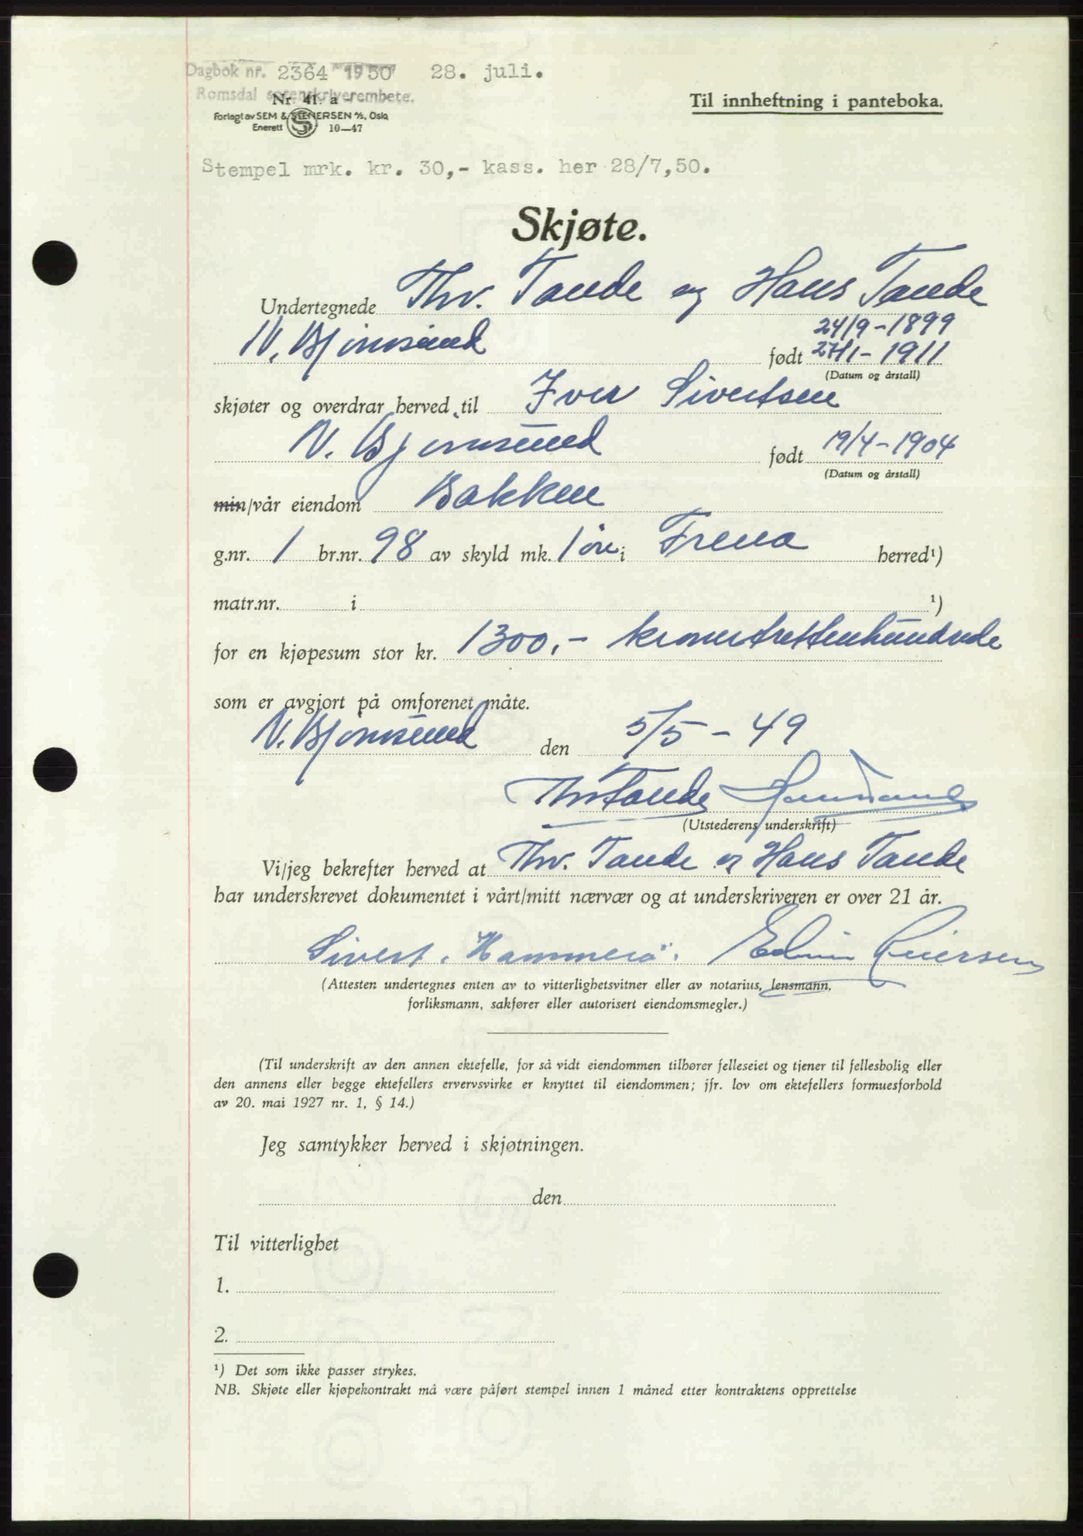 Dagbok nr. 2364 1950 28. juli.
Romsdal sorenskriverembete.
Nr. 41. a
Til innheftning i panteboka.
Forlagt av SEM & STENERSEN A/S, Oslo
Enerett 10—47
Stempel mrk. kr. 30,- kass. her 28/7,50.
Skjøte.
Undertegnede Thv. Tande og Hans Tande
24/9-1899
N. Bjørnsund født 27/1-1911
(Datum og årstall)
skjøter og overdrar herved til Iver Sivertsen
N. Bjørnsund født 19/4-1904
(Datum og årstall)
min/vår eiendom Bakken
g.nr. 1 br.nr. 98 av skyld mk. 1 øre i Frena herred¹)
matr.nr. i ¹)
for en kjøpesum stor kr. 1300,- kronertrettenhundrede
som er avgjort på omforenet måte.
N. Bjørnsund den 5/5-49
Thv Tande Hans Tande
(Utstederens underskrift)
Vi/jeg bekrefter herved at Thv. Tande og Hans Tande
har underskrevet dokumentet i vårt/mitt nærvær og at underskriveren er over 21 år.
Sivert. Hammerø. Edvin Reiersen
(Attesten undertegnes enten av to vitterlighetsvitner eller av notarius, lensmann,
forliksmann, sakfører eller autorisert eiendomsmegler.)
(Til underskrift av den annen ektefelle, for så vidt eiendommen tilhører felleseiet og tjener til fellesbolig eller
den annens eller begge ektefellers ervervsvirke er knyttet til eiendommen; jfr. lov om ektefellers formuesforhold
av 20. mai 1927 nr. 1, § 14.)
Jeg samtykker herved i skjøtningen.
den
Til vitterlighet
1.
2.
¹) Det som ikke passer strykes.
NB. Skjøte eller kjøpekontrakt må være påført stempel innen 1 måned etter kontraktens opprettelse